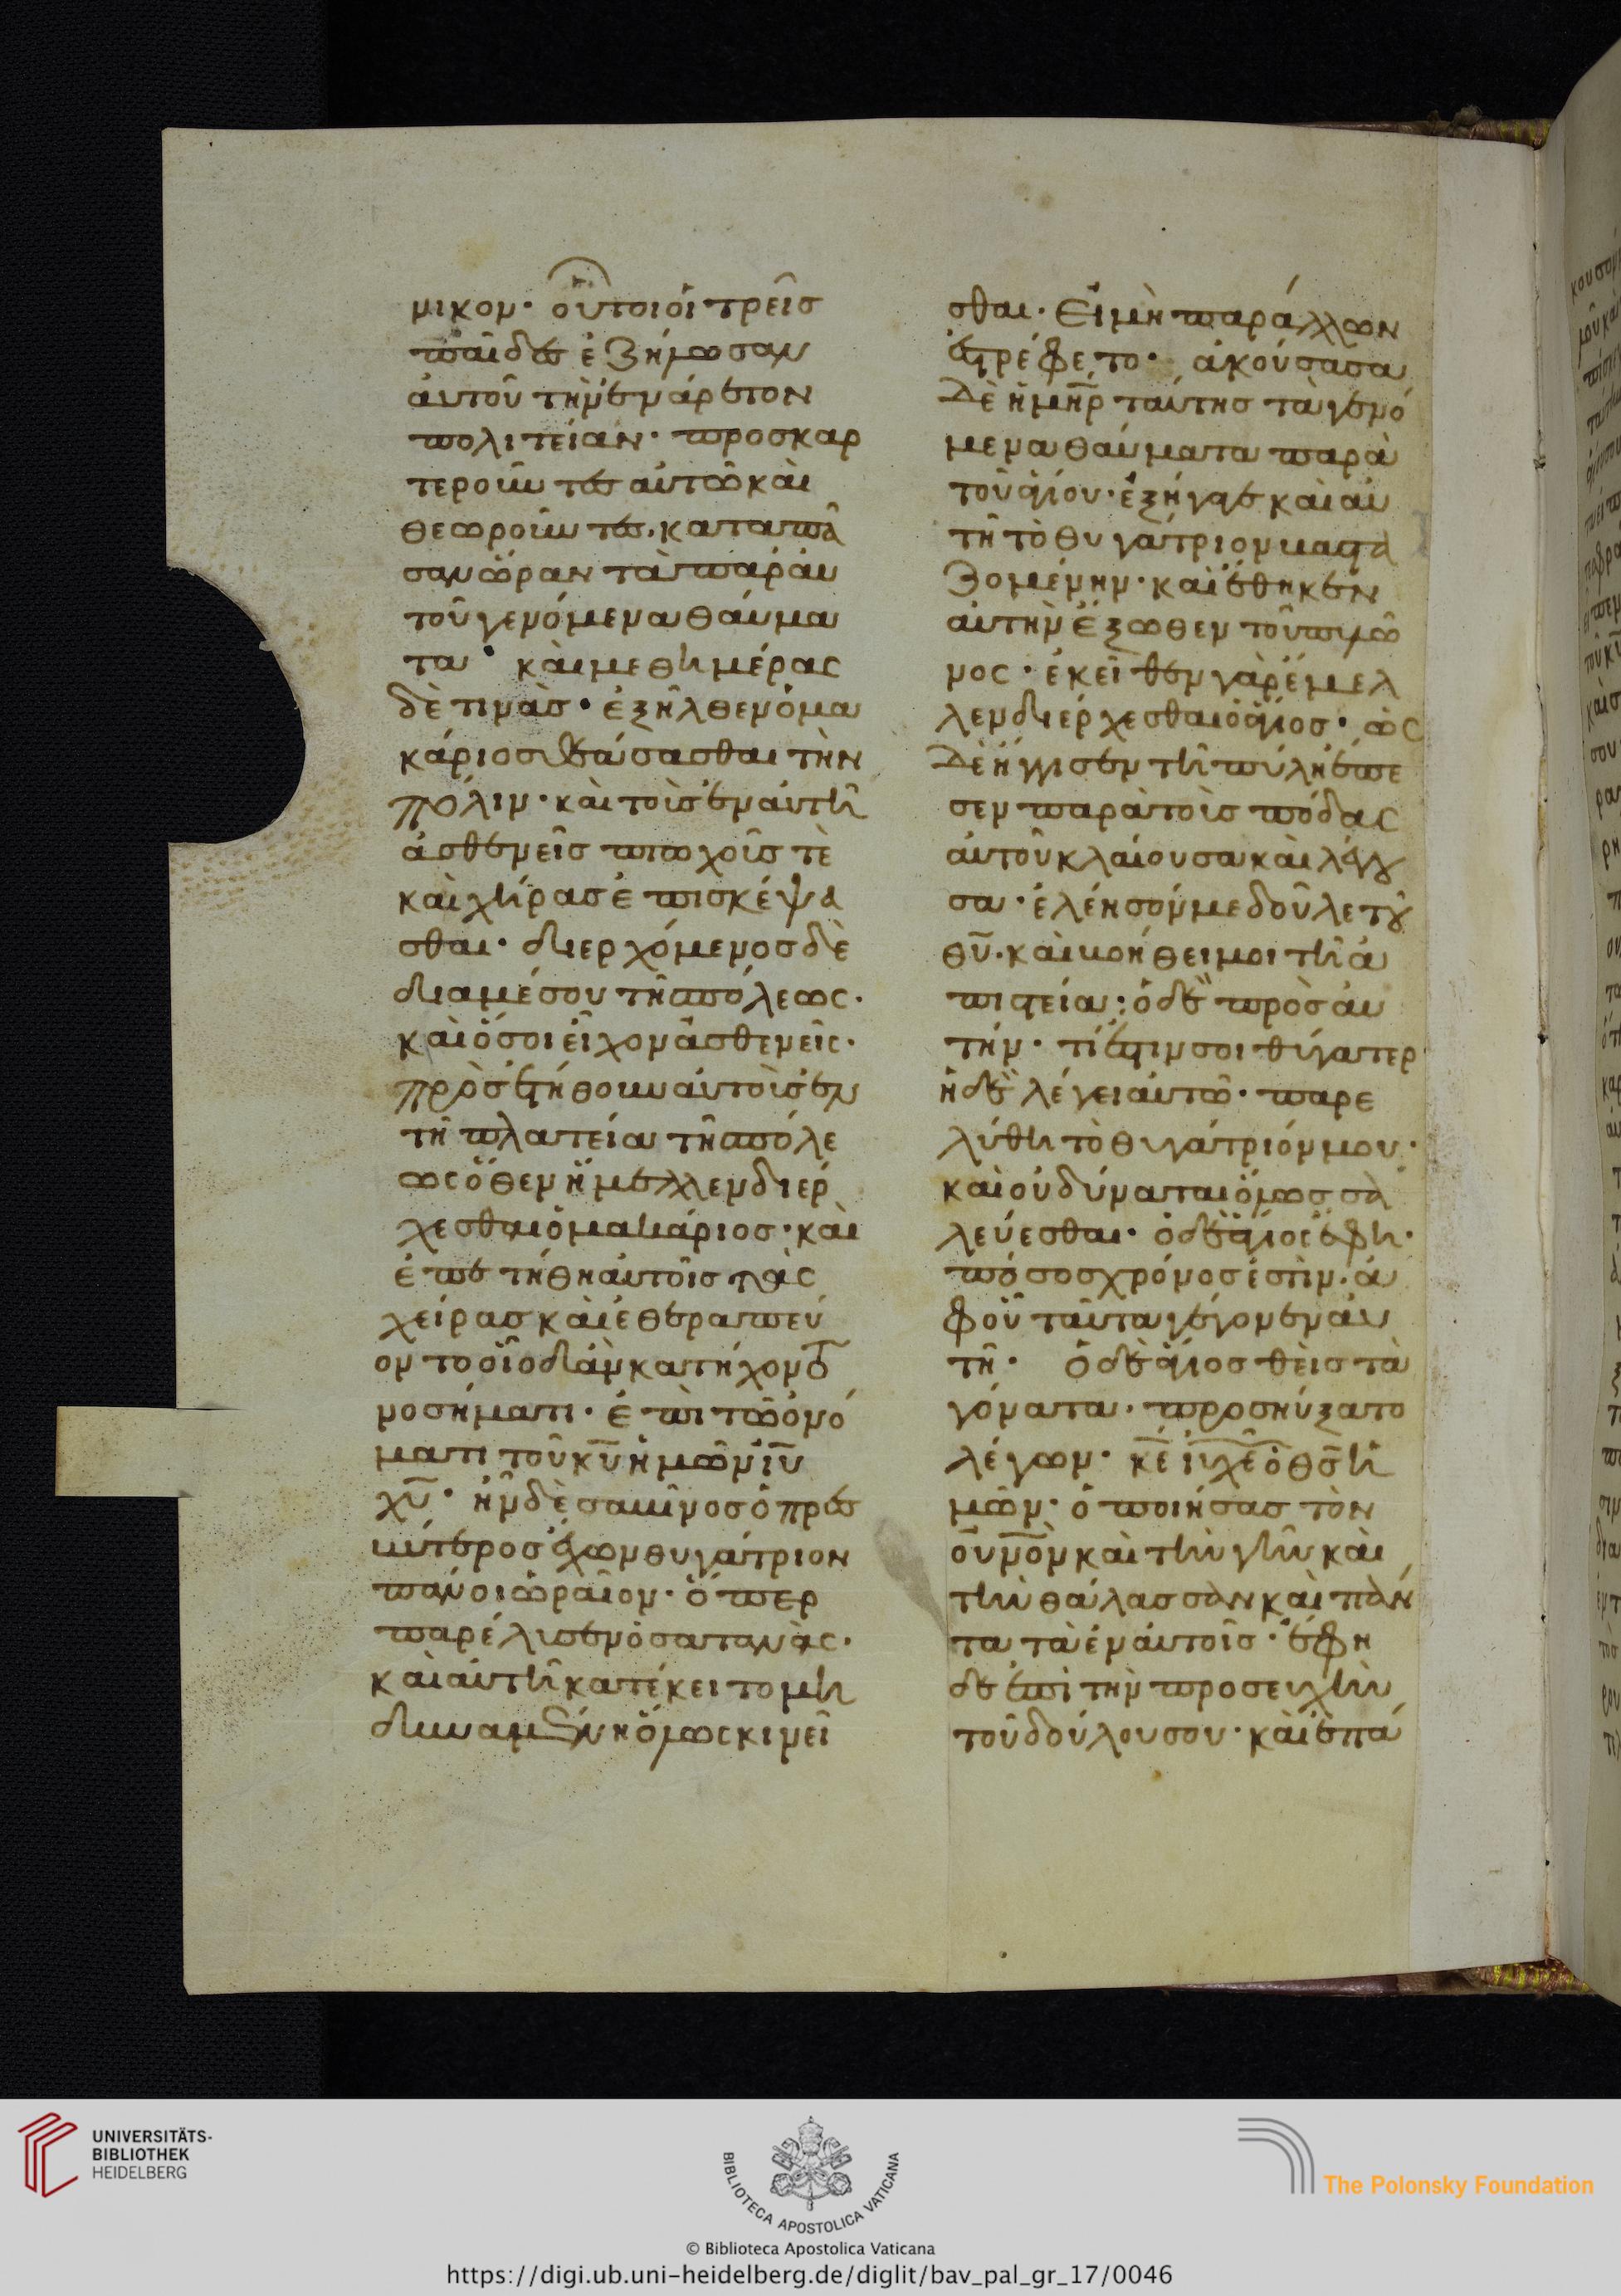 μικον· οὗτοι οἱ τρεῖς
παῖδες ἐζήλωσαν
αὐτοῦ τὴν ἐνάρετον
πολιτείαν· προσκαρ
τεροῦντες αὐτῶ καὶ
θεωροῦντες· κατα πᾶ
σαν ὥραν τὰ παρ' αυ
τοῦ γενόμενα θαύμα
τα· καὶ μεθ ημέρας
δὲ τινὰς· ἐξῆλθεν ὁ μα
κάριος θεάσασθαι τὴν
πόλιν· καὶ τοὺς ἐν αὐτῆ
ἀσθενεῖς πτωχοῦς τὲ
καὶ χήρας ἐπισκέψα
σθαι· διερχόμενος δὲ
διαμέσου τῆς πόλεως·
καὶ ὅσοι εἶχον ἀσθενεῖς·
προσετήθουν αὐτοὺς ἐν
τῆ πλατεία τῆς πόλε
ως ὅθεν ἤμελλεν διέρ
χεσθαι ὁ μακάριος· καὶ
ἐπετήθη αὐτοῖς τὰς
χείρας καὶ ἐθεραπεύ
οντο οἵο δ' ἂν κατήχοντο
νοσήματι· ἐπὶ τῶ ὀνό
ματι τοῦ κ̅υ̅ ἡμῶν ι̅υ̅
χ̅υ̅· ἦν δὲ σαμῖνος ὁ πρεσ
βύτερος ἔχων θυγάτριον
πάνοι ὡραῖον· ὅπερ
παρέλυσεν ὁ σατανὰς·
καὶ αὐτὴ κατέκειτο μὴ
δυναμένη ὅμως κινεῖ
σθαι· Εἰ μὴ παρ άλλων
ἐτρέφετο· ἀκούσασα
δὲ ἡ μ̅η̅ρ̅ ταύτης τὰ γενό
μενα θαύματα παρὰ
τοῦ ἁγίου· ἐξήγαγε καὶ αὐ
τῆ τὸ θυγάτριον βαστα
ζομένην· καὶ ἔθηκεν
αὐτὴν ἔξωθεν τοῦ πυλῶ
νος· ἐκεῖθεν γὰρ ἔμελ
λεν διέρχεσθαι ὁ ἅγιος· ὡς
δὲ ἤγγισεν τῆ πύλη ἔπε
σεν παρὰ τοὺς πόδας
αὐτοῦ κλαίουσα καὶ λέγου
σα· ἐλέησόν με δοῦλε τοῦ
θ̅υ̅· καὶ βοήθει μοι τῆ ἀ
πιστεία· ὁ δὲ πρὸς αὐ
τήν· τί ἐστιν σοι θύγατερ
ἡ δὲ λέγει αὐτῶ· παρε
λύθη τὸ θυγάτριόν μου·
καὶ οὐ δύναται ὅμως σα
λεύεσθαι· ὁ δὲ ἅγιος ἔφη·
πόσος χρόνος ἐστὶν· ἀ
φοῦ ταῦτα γέγονεν αὐ
τῆ· ὁ δὲ ἅγιος θεὶς τὰ
γόνατα· προσηύξατο
λέγων· κ̅ε̅ ι̅υ̅ χ̅ε̅ ὁ θ̅ς̅ ἡ
μῶν· ὁ ποιήσας τὸν
ο̅υ̅ν̅ο̅ν καὶ τὴν γῆν καὶ
τὴν θάλασσαν καὶ πάν
τα τὰ ἐν αὐτοῖς· ἔφη
δε ἐπὶ τὴν προσευχὴν
τοῦ δούλου σου· καὶ ἐπά
UNIVERSITÄTS-
BIBLIOTHEK
HEIDELBERG
BIBLIOTECA APOSTOLICA VATICANA
The Polonsky Foundation
© Biblioteca Apostolica Vaticana
https://digi.ub.uni-heidelberg.de/diglit/bav_pal_gr_17/0046